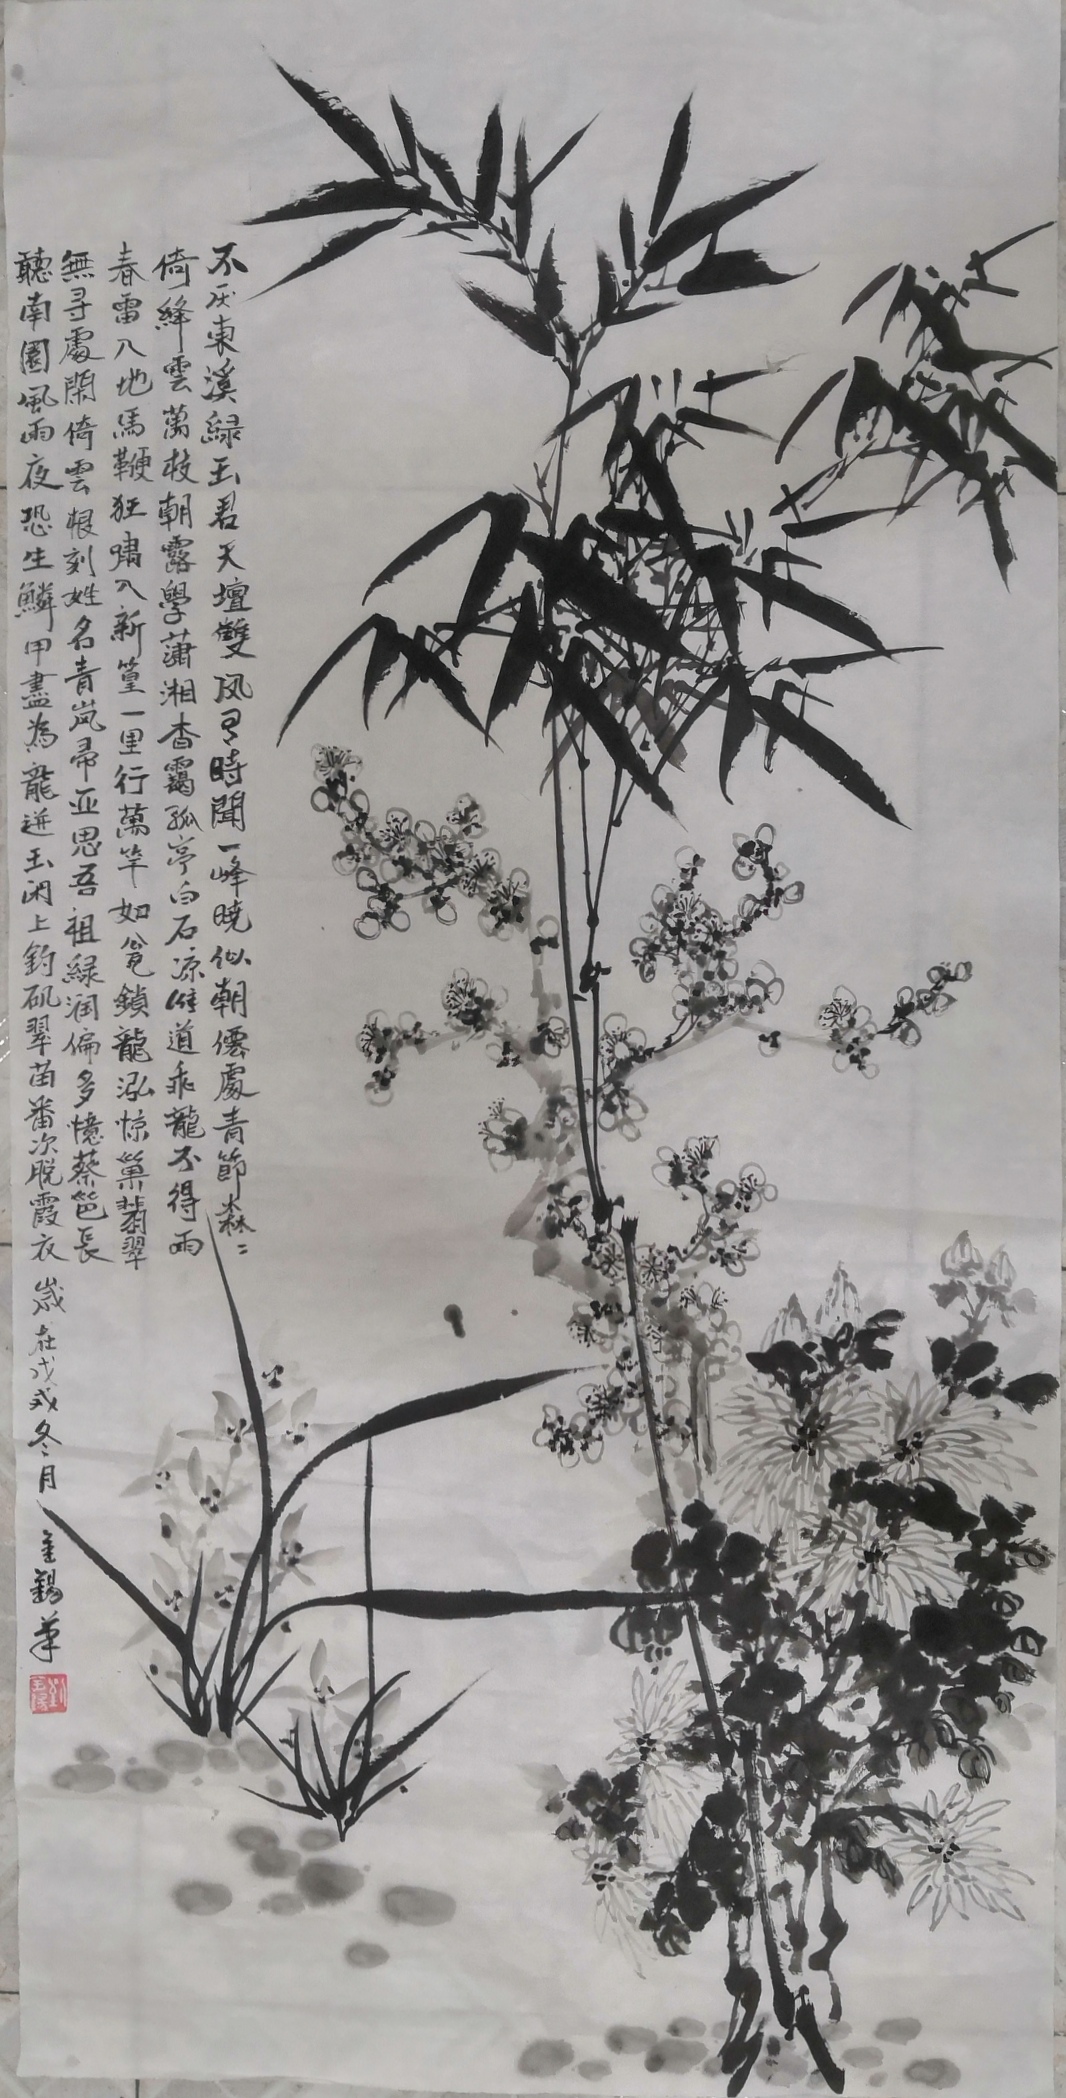 不厌東溪綠玉君天壇雙凤有時聞一峰曉似朝僊處青節森〻
倚絳雲萬枝朝露學瀟湘杳靄孤亭白石凉誰道乖龍不得雨
春雷入地馬鞭狂嘯入新篁一里行萬竿如瓮鎖龍泓惊巢翡翠
無寻處閑倚雲根刻姓名青岚帚亚思吾祖綠润偏多憶蔡邕長
聽南園風雨夜恐生鱗甲盡為龍迸玉闲上釣矶翠苗番次脱霞衣
歲在戊戌冬月
金錫革